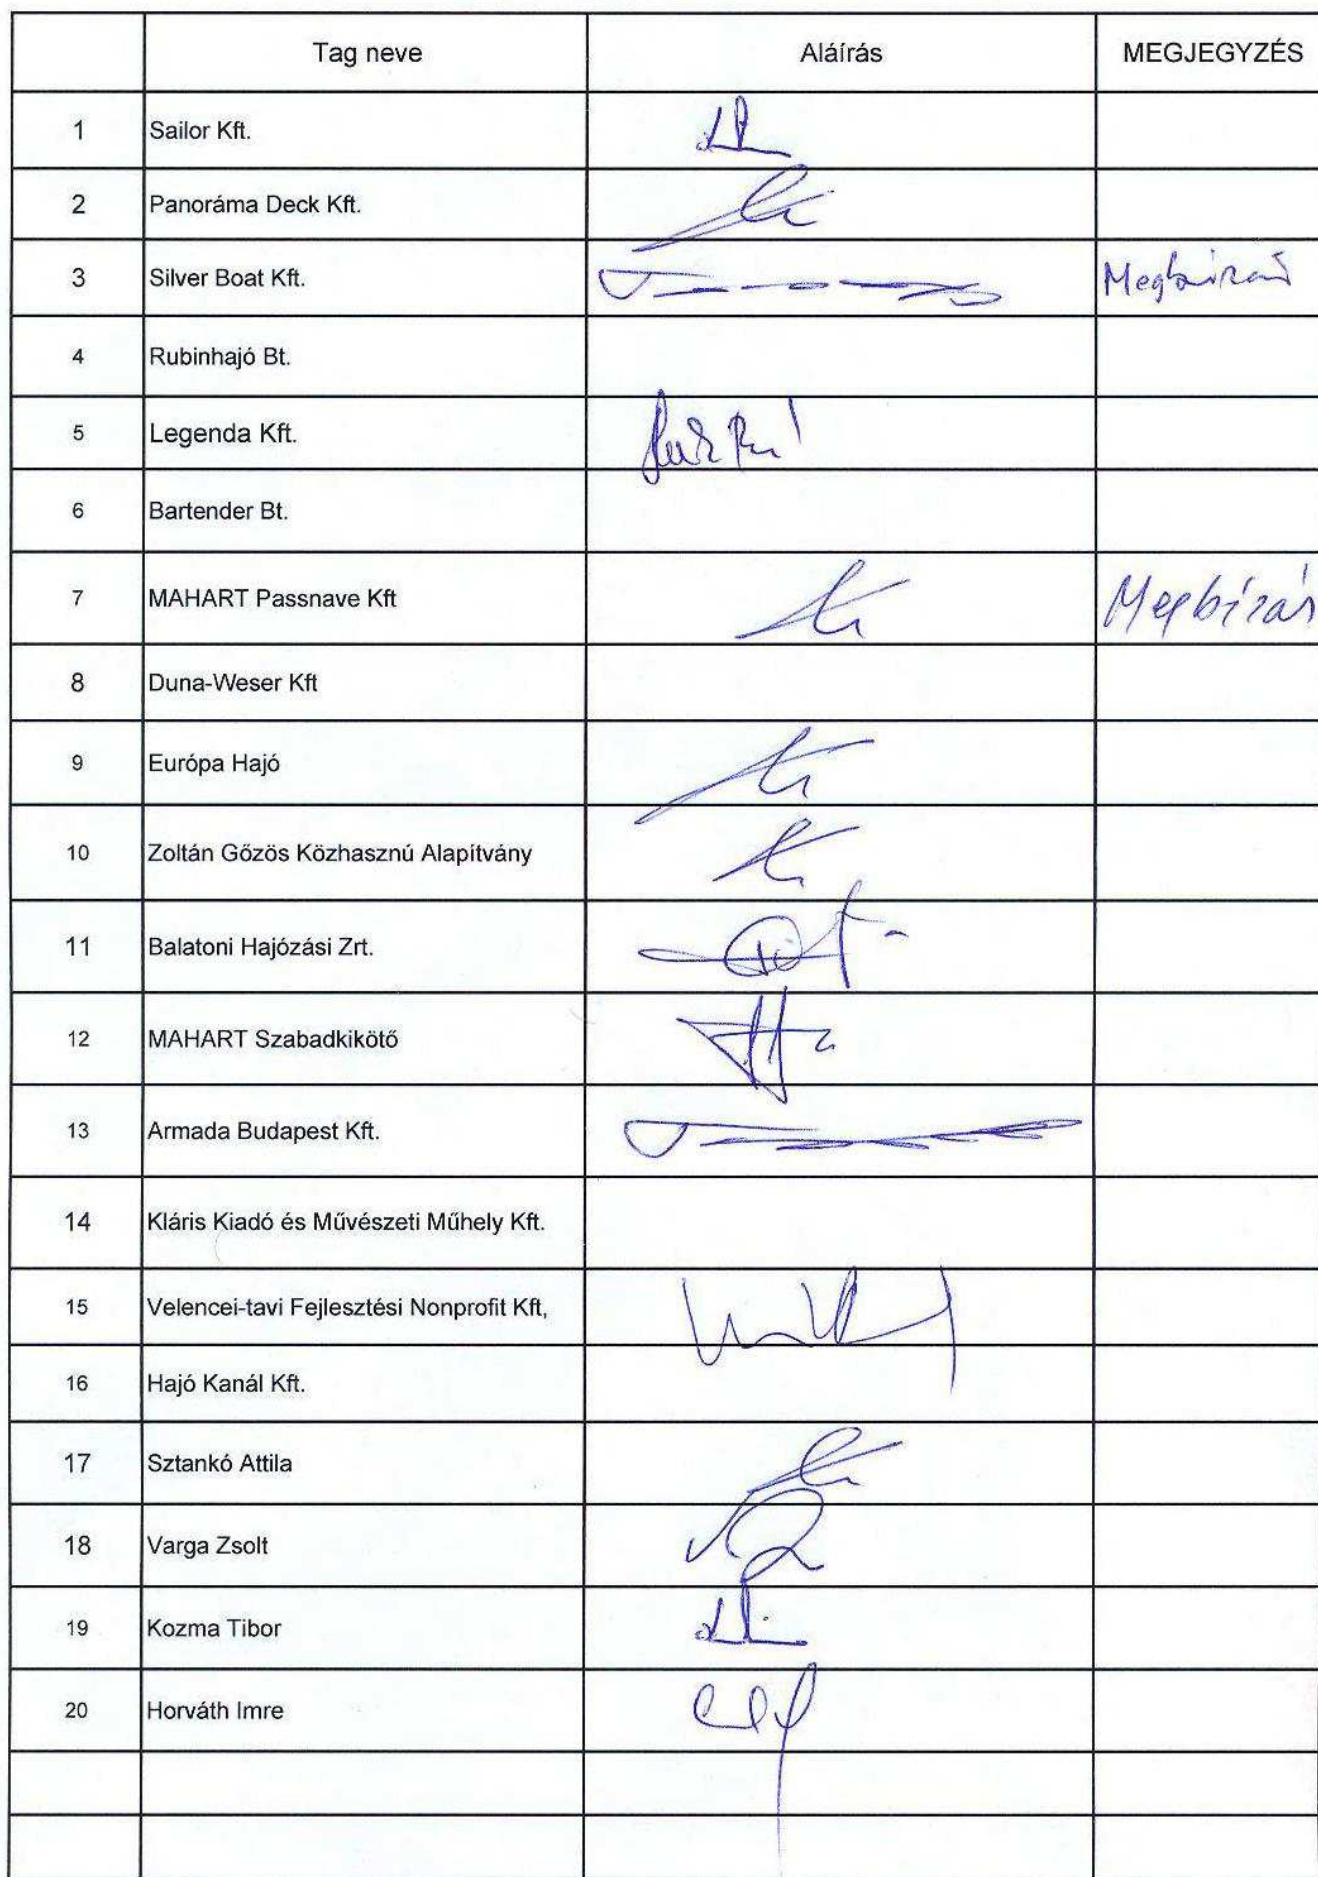 Tag neve Aláírás MEGJEGYZÉS
1 Sailor Kft.
2 Panoráma Deck Kft.
3 Silver Boat Kft.
4 Rubinhajó Bt.
5 Legenda Kft.
6 Bartender Bt.
7 MAHART Passnave Kft Megbízás
8 Duna-Weser Kft
9 Európa Hajó
10 Zoltán Gőzös Közhasznú Alapítvány
11 Balatoni Hajózási Zrt.
12 MAHART Szabadkikötő
13 Armada Budapest Kft.
14 Kláris Kiadó és Művészeti Műhely Kft.
15 Velencei-tavi Fejlesztési Nonprofit Kft,
16 Hajó Kanál Kft.
17 Sztankó Attila
18 Varga Zsolt
19 Kozma Tibor
20 Horváth Imre